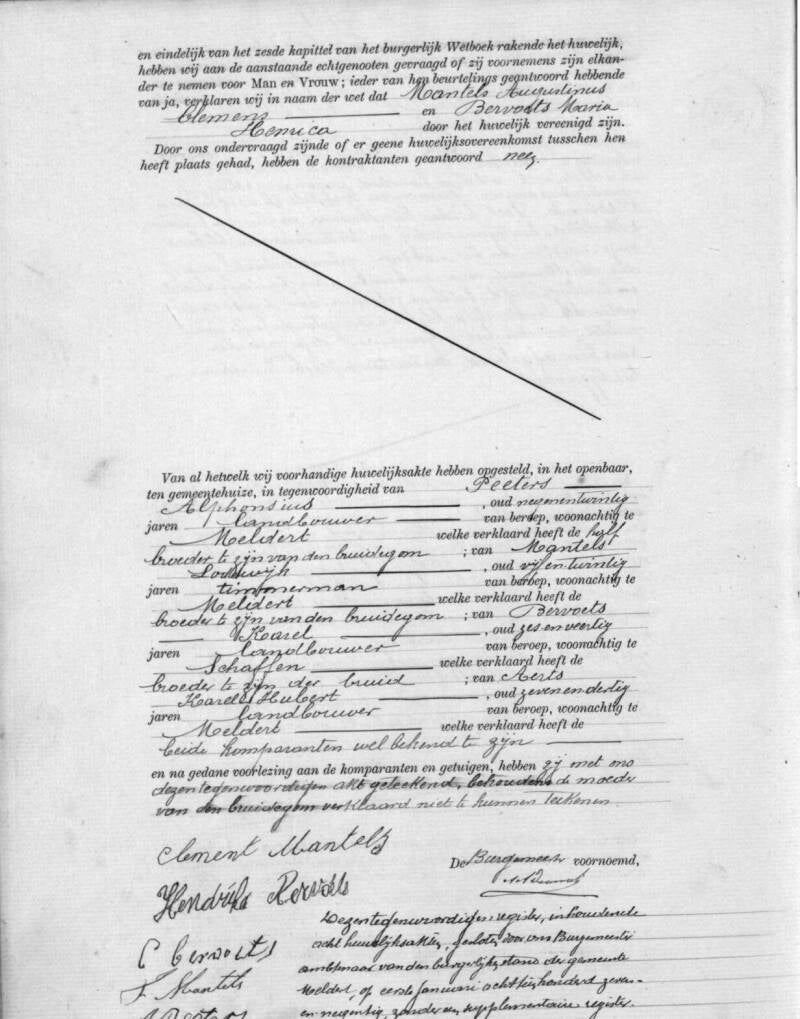 en eindelijk van het zesde kapittel van het burgerlijk Wetboek rakende het huwelijk,
hebben wij aan de aanstaande echtgenooten gevraagd of zij voornemens zijn elkan-
der te nemen voor Man en Vrouw; ieder van hen beurtelings geantwoord hebbende
van ja, verklaren wij in naam der wet dat Mantels Augustinus
Clemens en Bervoets Maria
Henrica door het huwelijk vereenigd zijn.
Door ons ondervraagd zijnde of er geene huwelijksovereenkomst tusschen hen
heeft plaats gehad, hebben de kontraktanten geantwoord neen.
Van al hetwelk wij voorhandige huwelijksakte hebben opgesteld, in het openbaar,
ten gemeentehuize, in tegenwoordigheid van Peeters
Alphonsius , oud negenentwintig
jaren landbouwer van beroep, woonachtig te
Meldert welke verklaard heeft de half
broeder te zijn van den bruidegom ; van Mantels
Lodewijk , oud vijfentwintig
jaren timmerman van beroep, woonachtig te
Meldert welke verklaard heeft de
broeder te zijn van den bruidegom ; van Bervoets
Karel , oud zesenveertig
jaren landbouwer van beroep, woonachtig te
Schaffen welke verklaard heeft de
broeder te zijn der bruid ; van Aerts
Karel Hubert , oud zevenendertig
jaren landbouwer van beroep, woonachtig te
Meldert welke verklaard heeft de
beide komparanten wel bekend te zijn
en na gedane voorlezing aan de komparanten en getuigen, hebben zij met ons
dezen tegenwoordigen akt geteekend, behoudens de moeder
van den bruidegom verklaard niet te kunnen teekenen
Clement Mantels
De Burgemeester voornoemd,
Hendrika Bervoets
Dezen tegenwoordigen register, inhoudende
acht huwelijksakten, gesloten door ons Burgemeester
C Bervoets
ambtenaar van den burgerlijken stand der gemeente
L Mantels
Meldert, op eersten Januari achttienhonderd zeven-
en negentig, zonder een supplementaire register.